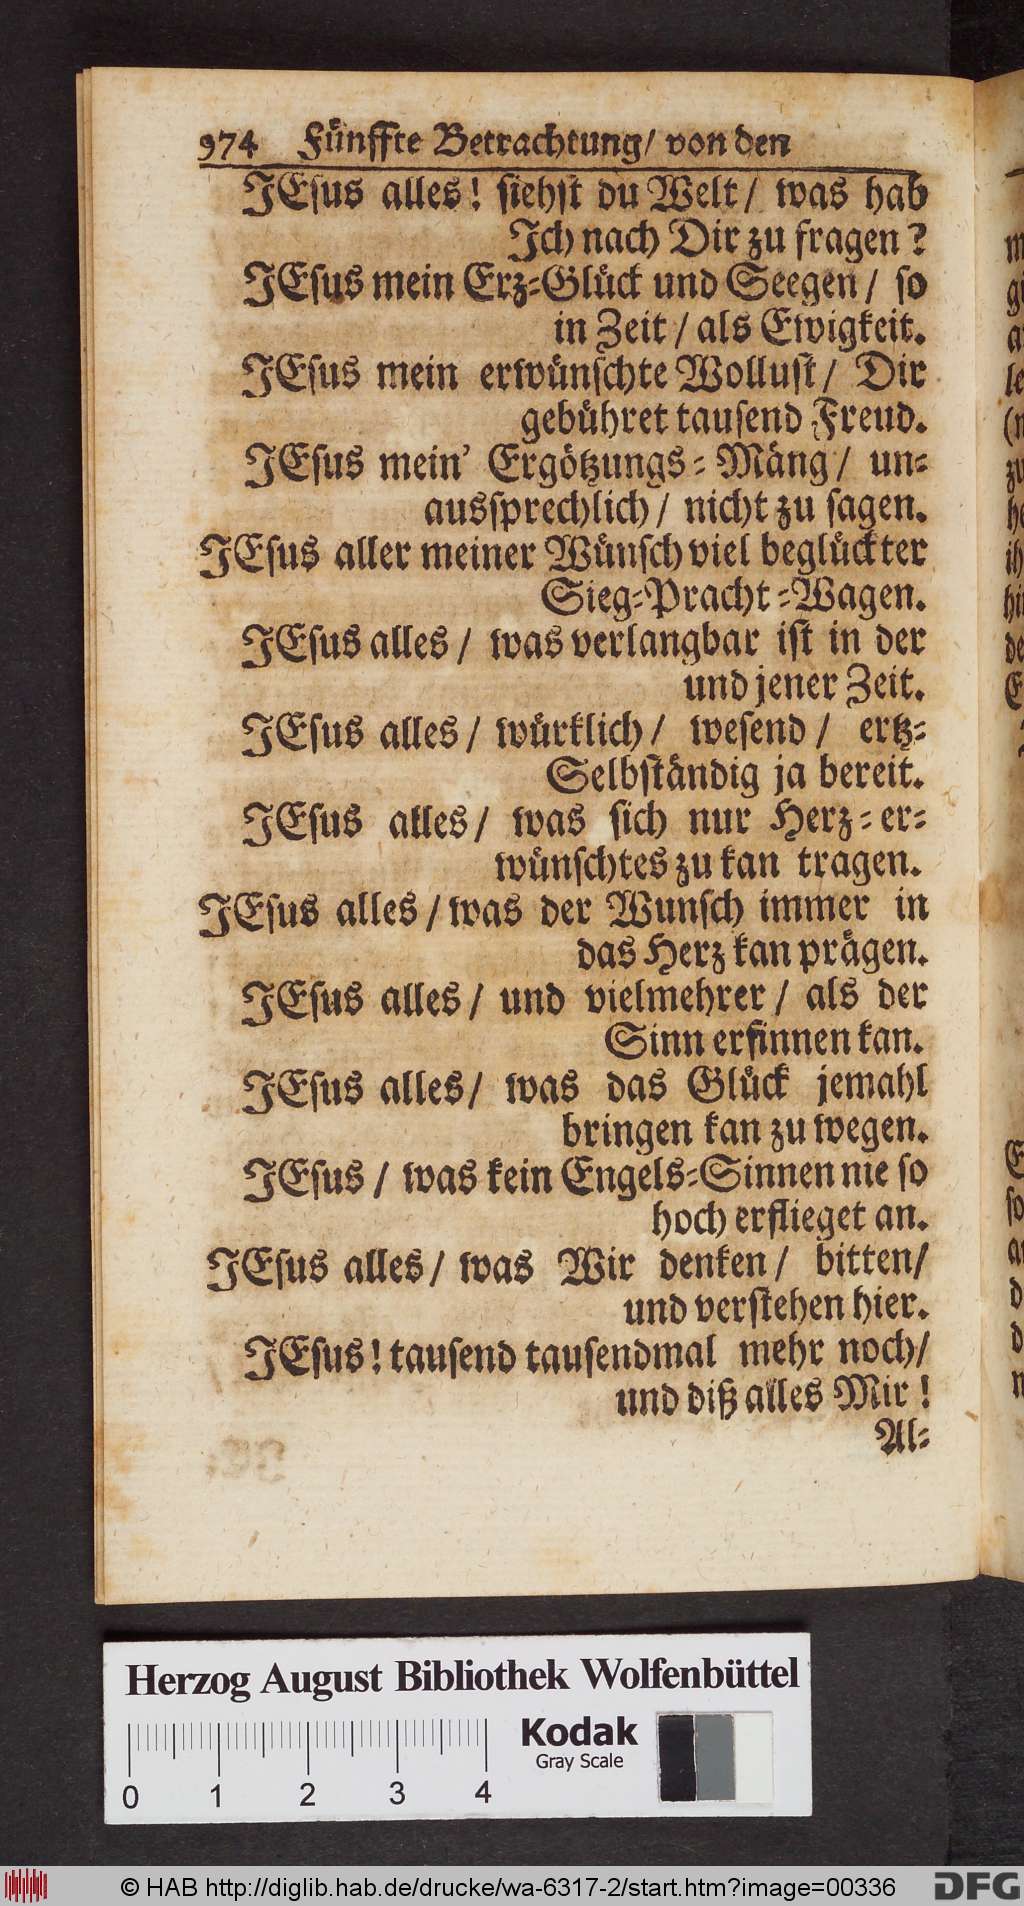 974 Fünffte Betrachtung/ von den
JEsus alles! siehst du Welt/ was hab
Ich nach Dir zu fragen?
JEsus mein Erz-Glück und Seegen/ so
in Zeit/ als Ewigkeit.
JEsus mein erwünschte Wollust/ Dir
gebühret tausend Freud.
JEsus mein' Ergötzungs-Mäng/ un-
aussprechlich/ nicht zu sagen.
JEsus aller meiner Wünsch viel beglückter
Sieg-Pracht-Wagen.
JEsus alles/ was verlangbar ist in der
und jener Zeit.
JEsus alles/ würklich/ wesend/ ertz-
Selbständig ja bereit.
JEsus alles/ was sich nur Herz-er-
wünschtes zu kan tragen.
JEsus alles/ was der Wunsch immer in
das Herz kan prägen.
JEsus alles/ und vielmehrer/ als der
Sinn ersinnen kan.
JEsus alles/ was das Glück jemahl
bringen kan zu wegen.
JEsus/ was kein Engels-Sinnen nie so
hoch erflieget an.
JEsus alles/ was Wir denken/ bitten/
und verstehen hier.
JEsus! tausend tausendmal mehr noch/
und diß alles Mir!
Al-
Herzog August Bibliothek Wolfenbüttel
Kodak
Gray Scale
0 1 2 3 4
© HAB http://diglib.hab.de/drucke/wa-6317-2/start.htm?image=00336
DFG